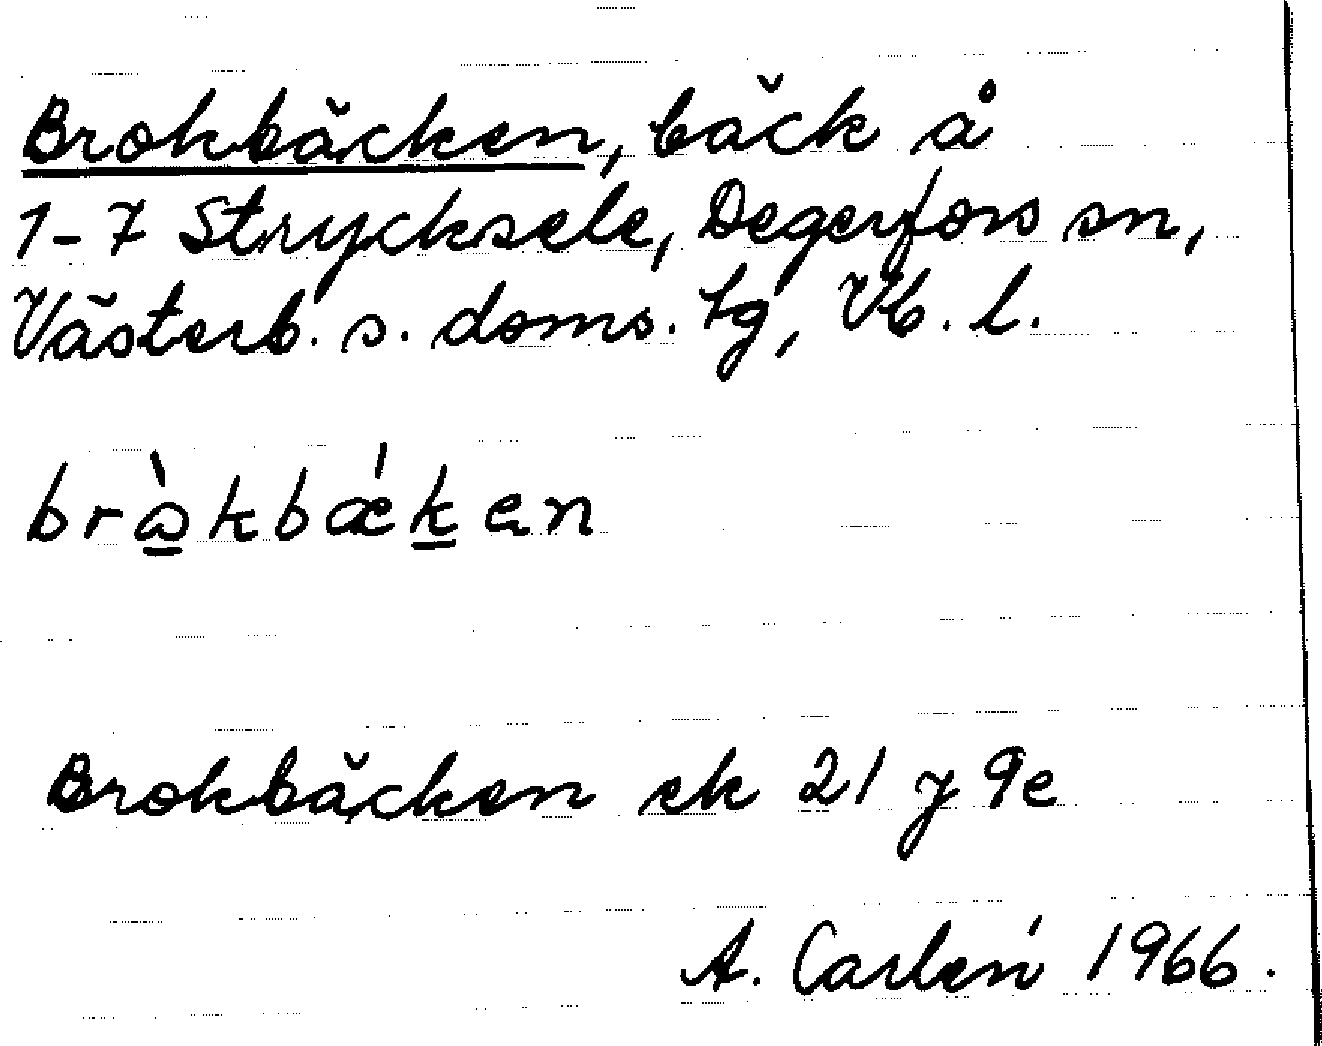 Brokbäcken, bäck å
1-7 Strycksele, Degerfors sn,
Västerb. s. doms. tg, Vb. l.
bròkbǽken
Brokbäcken ek 21 J 9e
A. Carlén 1966.